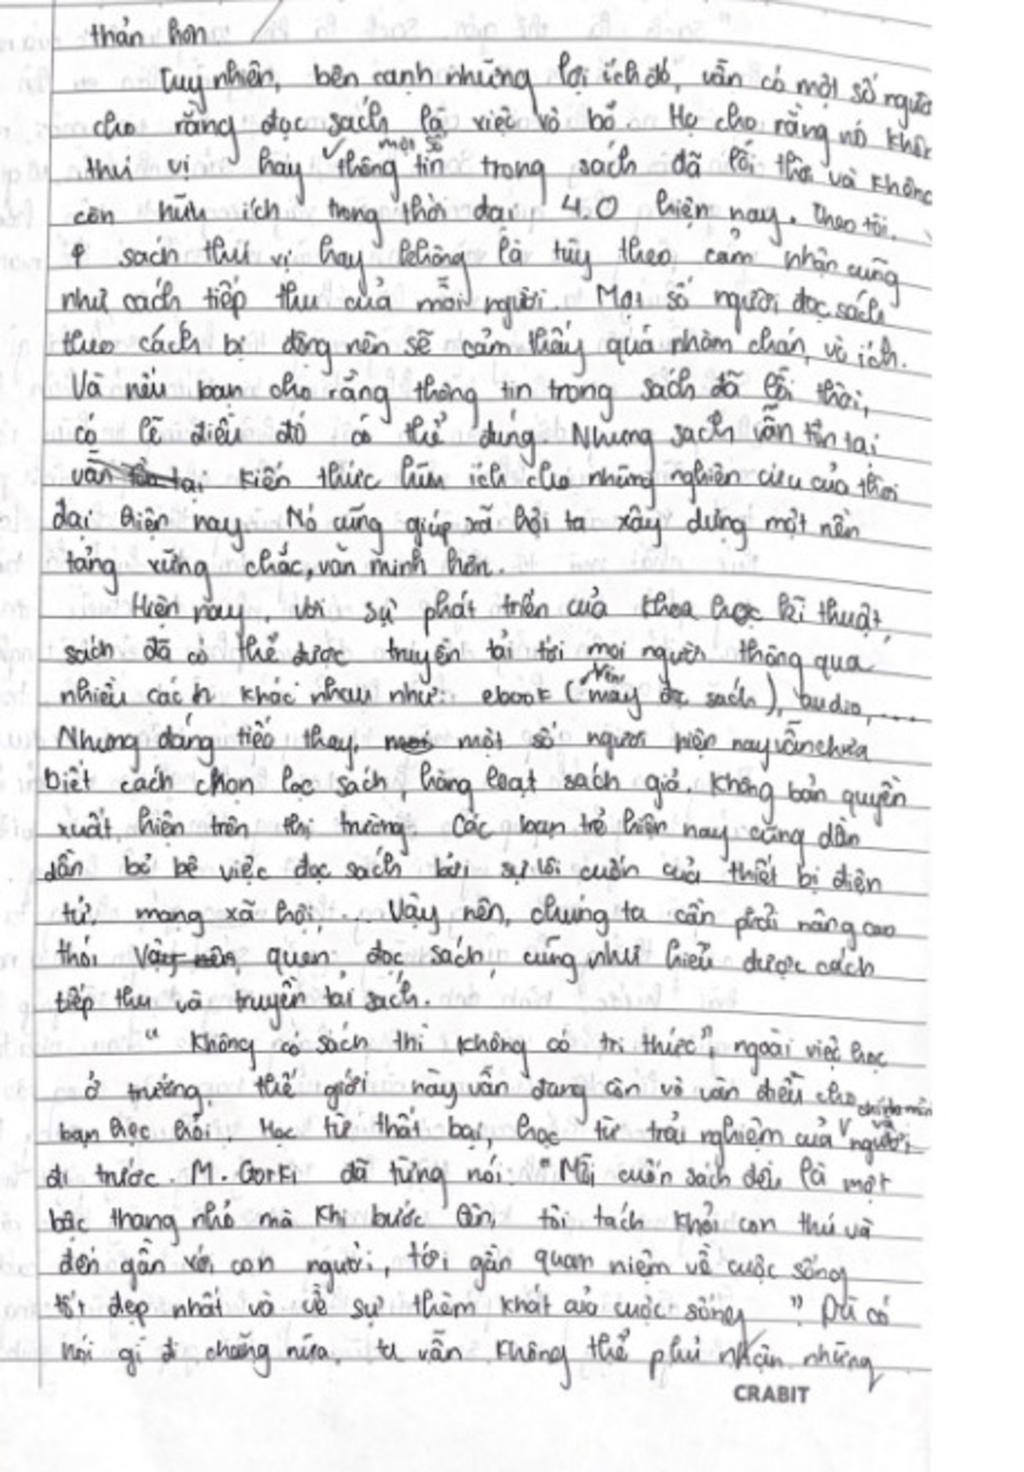 thản hơn
Tuy nhiên, bên cạnh những lợi ích đó, vẫn có một số người
cho rằng đọc sách là việc vô bổ. Họ cho rằng nó không
thú vị hay một số thông tin trong sách đã lỗi thời và không
còn hữu ích trong thời đại 4.0 hiện nay. Theo tôi,
sách thú vị hay không là tùy theo cảm nhận cũng
như cách tiếp thu của mỗi người. Một số người đọc sách
theo cách bị động nên sẽ cảm thấy quá nhàm chán, vô ích.
Và nếu bạn cho rằng thông tin trong sách đã lỗi thời,
có lẽ điều đó có thể đúng Nhưng sách vẫn tồn tại
kiến thức hữu ích cho những nghiên cứu của thời
đại hiện nay. Nó cũng giúp xã hội ta xây dựng một nền
tảng vững chắc, văn minh hơn.
Hiện nay, với sự phát triển của khoa học kĩ thuật,
sách đã có thể được truyền tải tới mọi người thông qua
nhiều cách khác nhau như: ebook (máy đọc sách), audio,....
Nhưng đáng tiếc thay, một số người hiện nay vẫn chưa
biết cách chọn lọc sách, hàng loạt sách giả, không bản quyền
xuất hiện trên thị trường. Các bạn trẻ hiện nay cũng dần
dần bỏ bê việc đọc sách bởi sự lôi cuốn của thiết bị điện
tử, mạng xã hội,.. Vậy nên, chúng ta cần phải nâng cao
thói quen đọc sách, cũng như hiểu được cách
tiếp thu và truyền tải sách.
" Không có sách thì không có tri thức", ngoài việc học
ở trường, thế giới này vẫn đang còn vô vàn điều cho
bạn học hỏi. Học từ thất bại, học từ trải nghiệm của chính mình và người
đi trước. M. Gorki đã từng nói: "Mỗi cuốn sách đều là một
bậc thang nhỏ mà khi bước lên, tôi tách khỏi con thú và
đến gần với con người, tới gần quan niệm về cuộc sống
tốt đẹp nhất và về sự thèm khát của cuộc sống ". Dù có
nói gì đi chăng nữa, ta vẫn không thể phủ nhận những
CRABIT